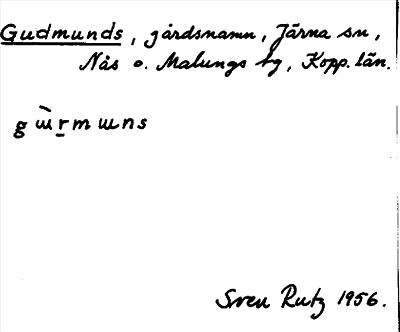 Gudmunds, gårdsnamn, Järna sn,
Nås o. Malungs tg, Kopp. län.
g ɯ̀ r̲ m ɯ n s
Sven Rutz 1956.